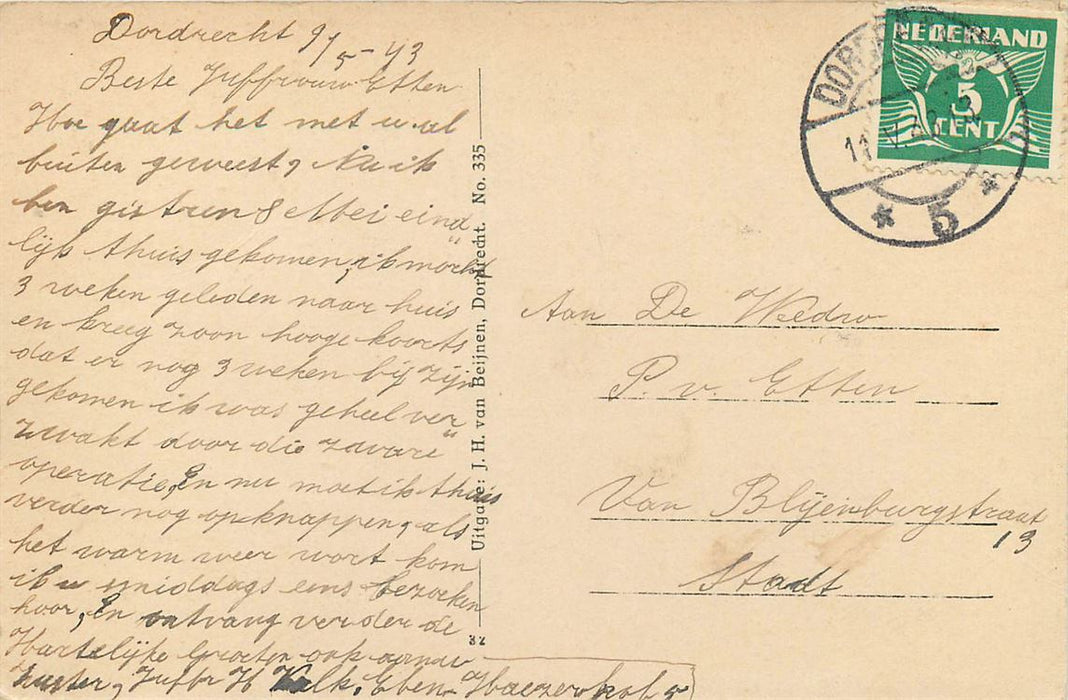 Dordrecht 9/5-43
Beste Juffrouw Etten
Hoe gaat het met u al
buiten geweest, Nu ik
ben gistren 8 Mei eind"
lijk thuis gekomen, ik mocht
3 weken geleden naar huis
en kreeg zoon hooge koorts
dat er nog 3 weken bij zijn
gekomen ik was geheel ver"
zwakt door die zware
operatie, En nu moet ik thuis
verder nog opknappen, als
het warm weer wort kom
ik u smiddags eens bezoeken
hoor, En ontvang verder de
Hartelijke Groeten ook aan uw
zuster, Juffr H Kalk. Eben-Haezerhof 5
Uitgave: J. H. van Beijnen, Dordrecht. No. 335
32
NEDERLAND
5
CENT
DORDRECHT
11 V 43
* 5 *
Aan De Weedw
P. v. Etten
Van Blyenburgstraat
13
Stadt